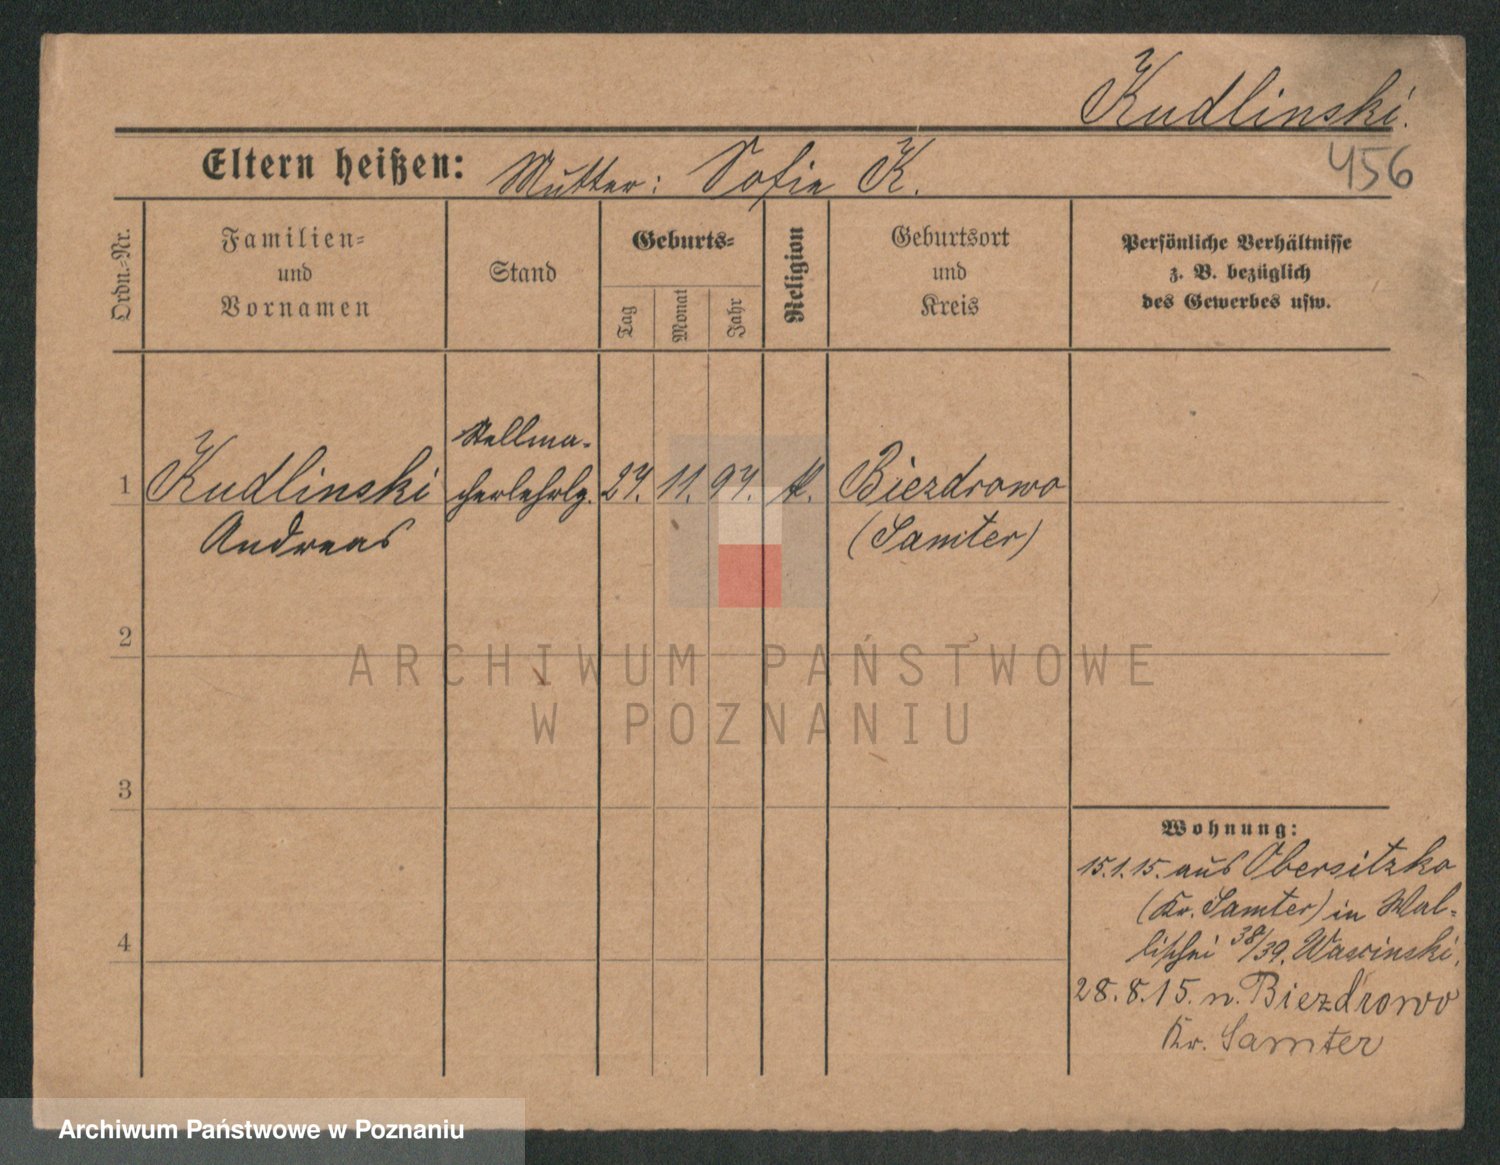 Kudlinski.
456
Eltern heißen: Mutter: Sofie K.
Ordn.-Nr.
Familien-
und
Vornamen
Stand
Geburts-
Tag
Monat
Jahr
Religion
Geburtsort
und
Kreis
Persönliche Verhältnisse
z. B. bezüglich
des Gewerbes usw.
Stellma-
1 Kudlinski cherlehrlg. 27. 11. 97. k. Biezdrowo
Andreas (Samter)
2
3
4
Wohnung:
15.1.15. aus Obersitzko
(Kr. Samter) in Wal-
lischei 38/39.
28.8.15. n. Biezdrowo
Kr. Samter
ARCHIWUM PAŃSTWOWE
W POZNANIU
Archiwum Państwowe w Poznaniu